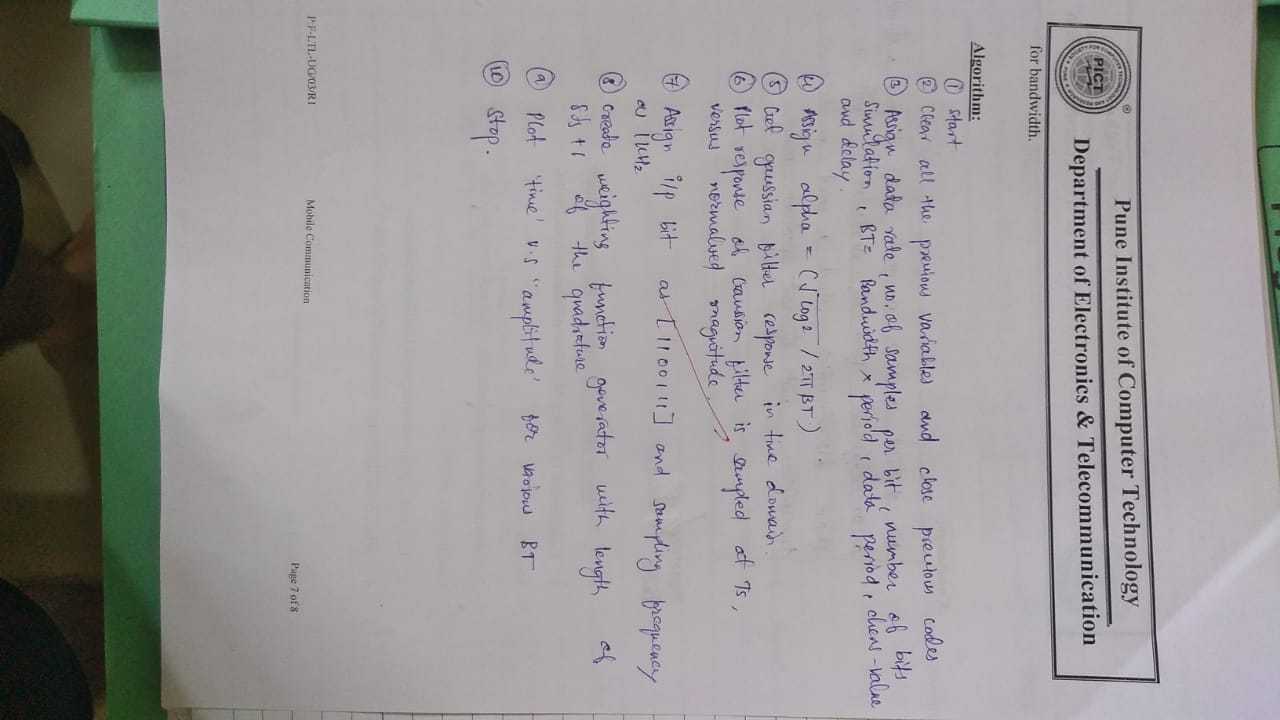 PICT
Pune Institute of Computer Technology
Department of Electronics & Telecommunication
for bandwidth.
Algorithm:
① Start
② Clear all the previous variables and close previous codes
③ Assign data rate, no. of samples per bit, number of bits
Simulation, BT= Bandwidth × period, data period, -value
and delay.
④ Assign alpha = (√log2 / 2π BT)
⑤ Get gaussian filter response in time domain.
⑥ Plot response of Gaussian filter is sampled at Ts,
versus normalised magnitude.
⑦ Assign i/p bit as [1100111] and sampling frequency
as 1KHz
⑧ Create weighting function generator with length of
+1 of the quadrature
⑨ Plot 'time' v.s "amplitude' for various BT
⑩ Stop.
P:F-LTL-UG/03/R1
Mobile Communication
Page 7 of 8